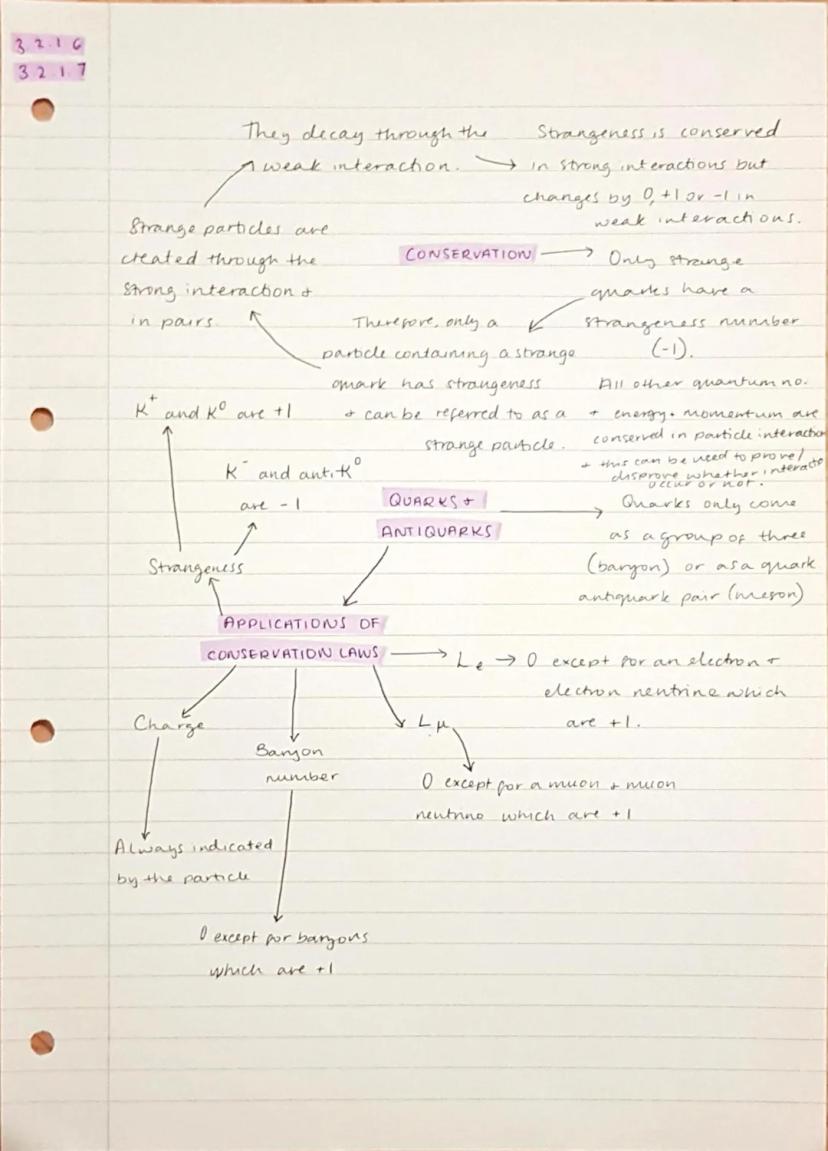 3.2.1.6
3.2.1.7
They decay through the
weak interaction.
Strangeness is conserved
in strong interactions but
changes by 0, +1 or -1 in
weak interactions.
Strange particles are
created through the
strong interaction +
in pairs.
CONSERVATION
Only strange
quarks have a
strangeness number
(-1).
Therefore, only a
particle containing a strange
quark has strangeness
+ can be referred to as a
strange particle.
All other quantum no.
+ energy + momentum are
conserved in particle interaction
+ this can be used to prove/
disprove whether interacto
occur or not.
K⁺ and K⁰ are +1
K⁻ and anti K⁰
are -1
QUARKS +
ANTIQUARKS
Quarks only come
as a group of three
(baryon) or as a quark
antiquark pair (meson)
Strangeness
APPLICATIONS OF
CONSERVATION LAWS
Lₑ → 0 except for an electron +
electron neutrino which
are +1.
Charge
Baryon
number
Lμ
0 except for a muon + muon
neutrino which are +1
Always indicated
by the particle
0 except for baryons
which are +1